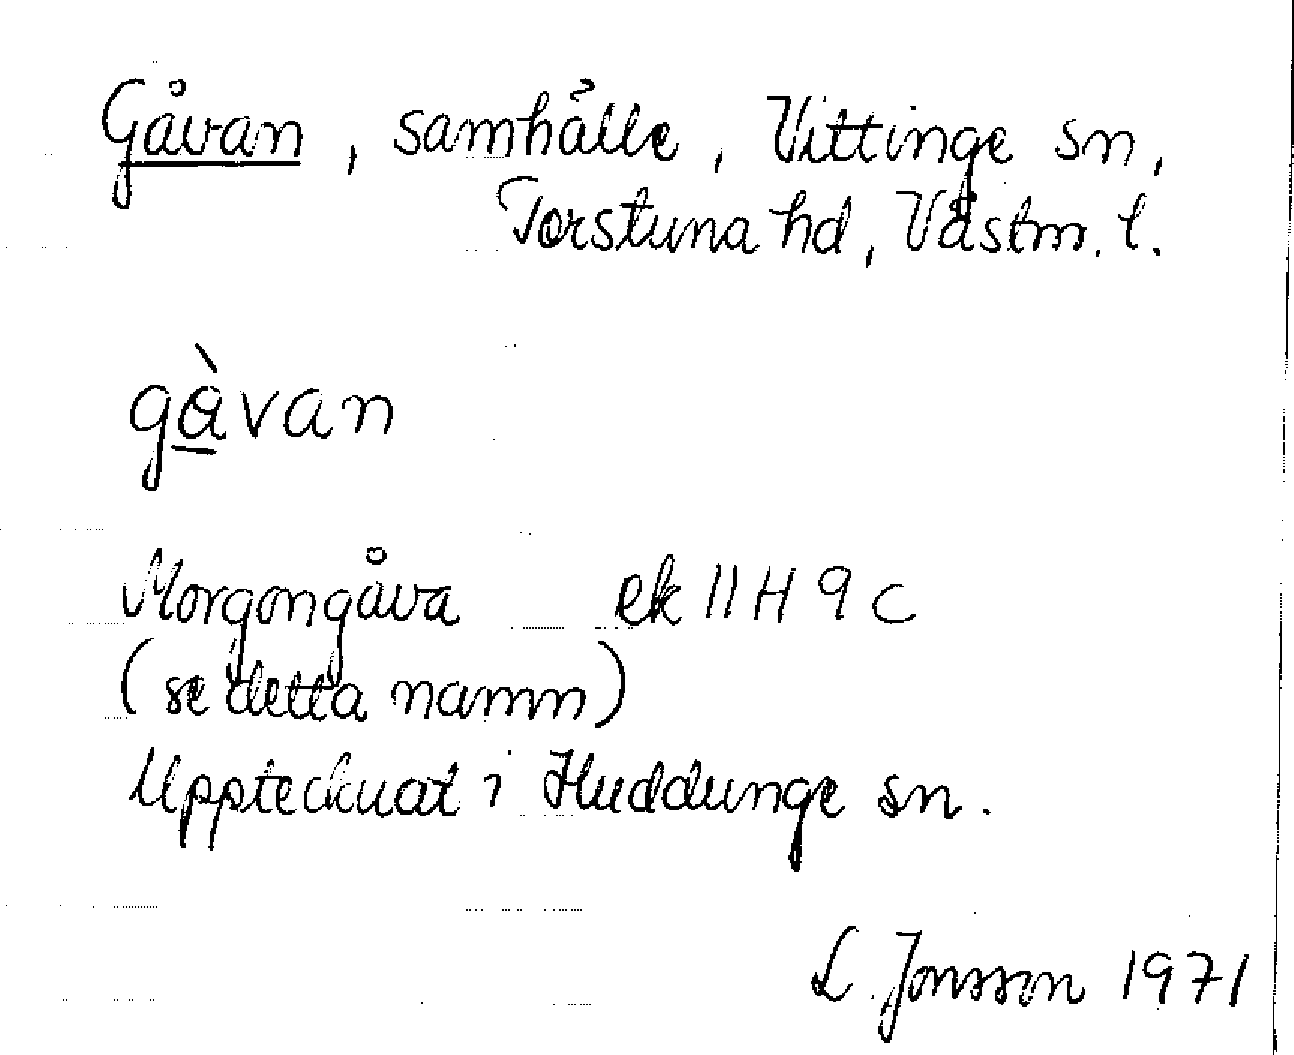 Gåvan, samhälle, Vittinge sn,
Torstuna hd, Västm. l.
gàvan
Morgongåva ek 11H 9c
(se detta namn)
Upptecknat i Huddunge sn.
L. Jonsson 1971